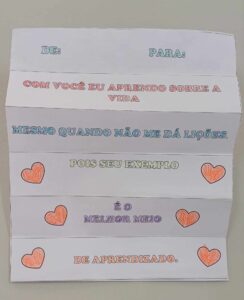 DE: PARA:
COM VOCÊ EU APRENDO SOBRE A
VIDA
MESMO QUANDO NÃO ME DÁ LIÇÕES,
POIS SEU EXEMPLO
É O
MELHOR MEIO
DE APRENDIZADO.